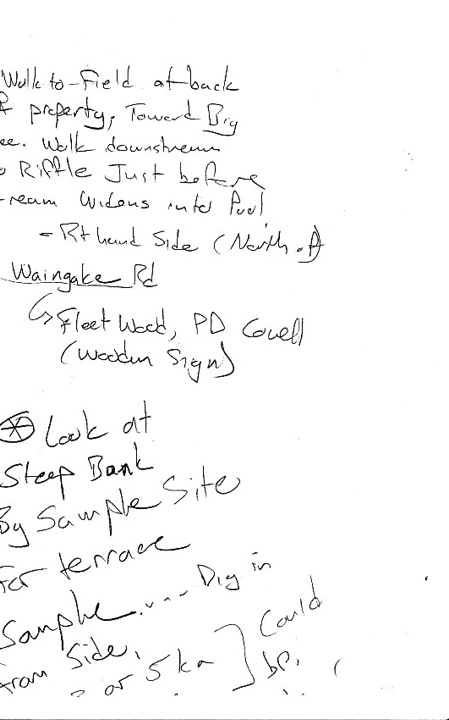 Walk to Field at back
property, Toward Big
ee. Walk downstream
o Riffle Just before
ream Widens into Pool
- Rt hand Side (North
Waingake Rd
↳ Fleetwood, PD Cowell
(Wooden Sign)
⊛ Look at
Steep Bank
By Sample Site
For terrace
Sample.... Dig in
from Side,
or 5 ka ] Could
be,